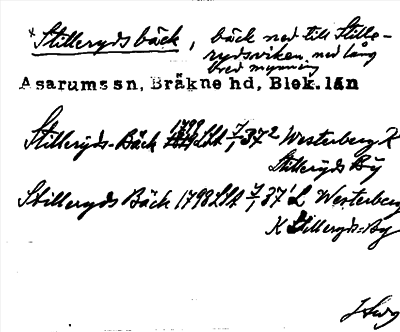 * Stilleryds bäck, bäck ned till Stille-
rydsviken med lång
bred mynning
Asarums sn, Bräkne hd, Blek. län
Stilleryds-Bäck 1799 Westerberg K
Stilleryds By
Stilleryds Bäck 1798 L Westerberg
K Stilleryds-By